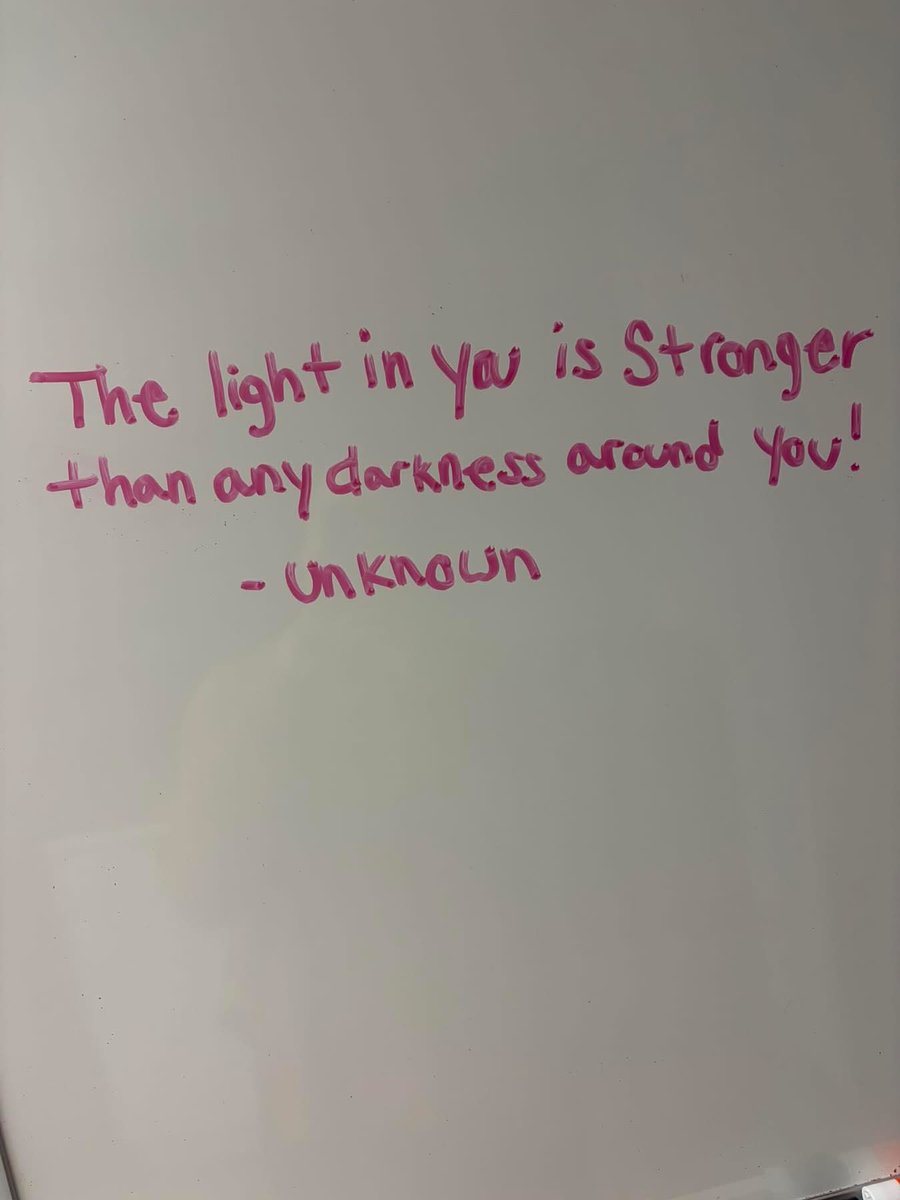 The light in you is Stronger
than any darkness around you!
- unknown